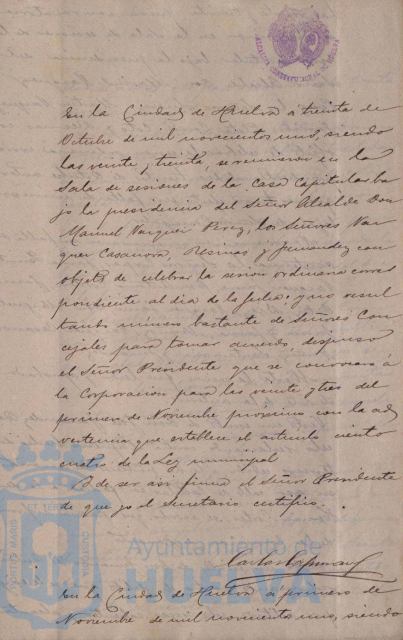 En la Ciudad de Huelva á treinta de
Octubre de mil novecientos uno, siendo
las veinte y treinta, se reunieron en la
Sala de sesiones de la Casa Capitular ba
jo la presidencia del Señor Alcalde Don
Manuel Vazquez Perez, los Señores Vaz
quez Casanova, Resinas y Fernandez con
objeto de celebrar la sesion ordinaria corres
pondiente al dia de la fecha, y no resul
tando número bastante de Señores Con
cejales para tomar acuerdo, dispuso
el Señor Presidente que se convocara á
la Corporacion para las veinte y tres del
primero de Noviembre proximo con la ad
vertencia que establece el articulo ciento
cuatro de la Ley municipal
de ser asi firma el Señor Presidente
de que yo el Secretario certifico.
Ayuntamiento de
HUELVA
En la Ciudad de Huelva á primero de
Noviembre de mil novecientos uno, siendo